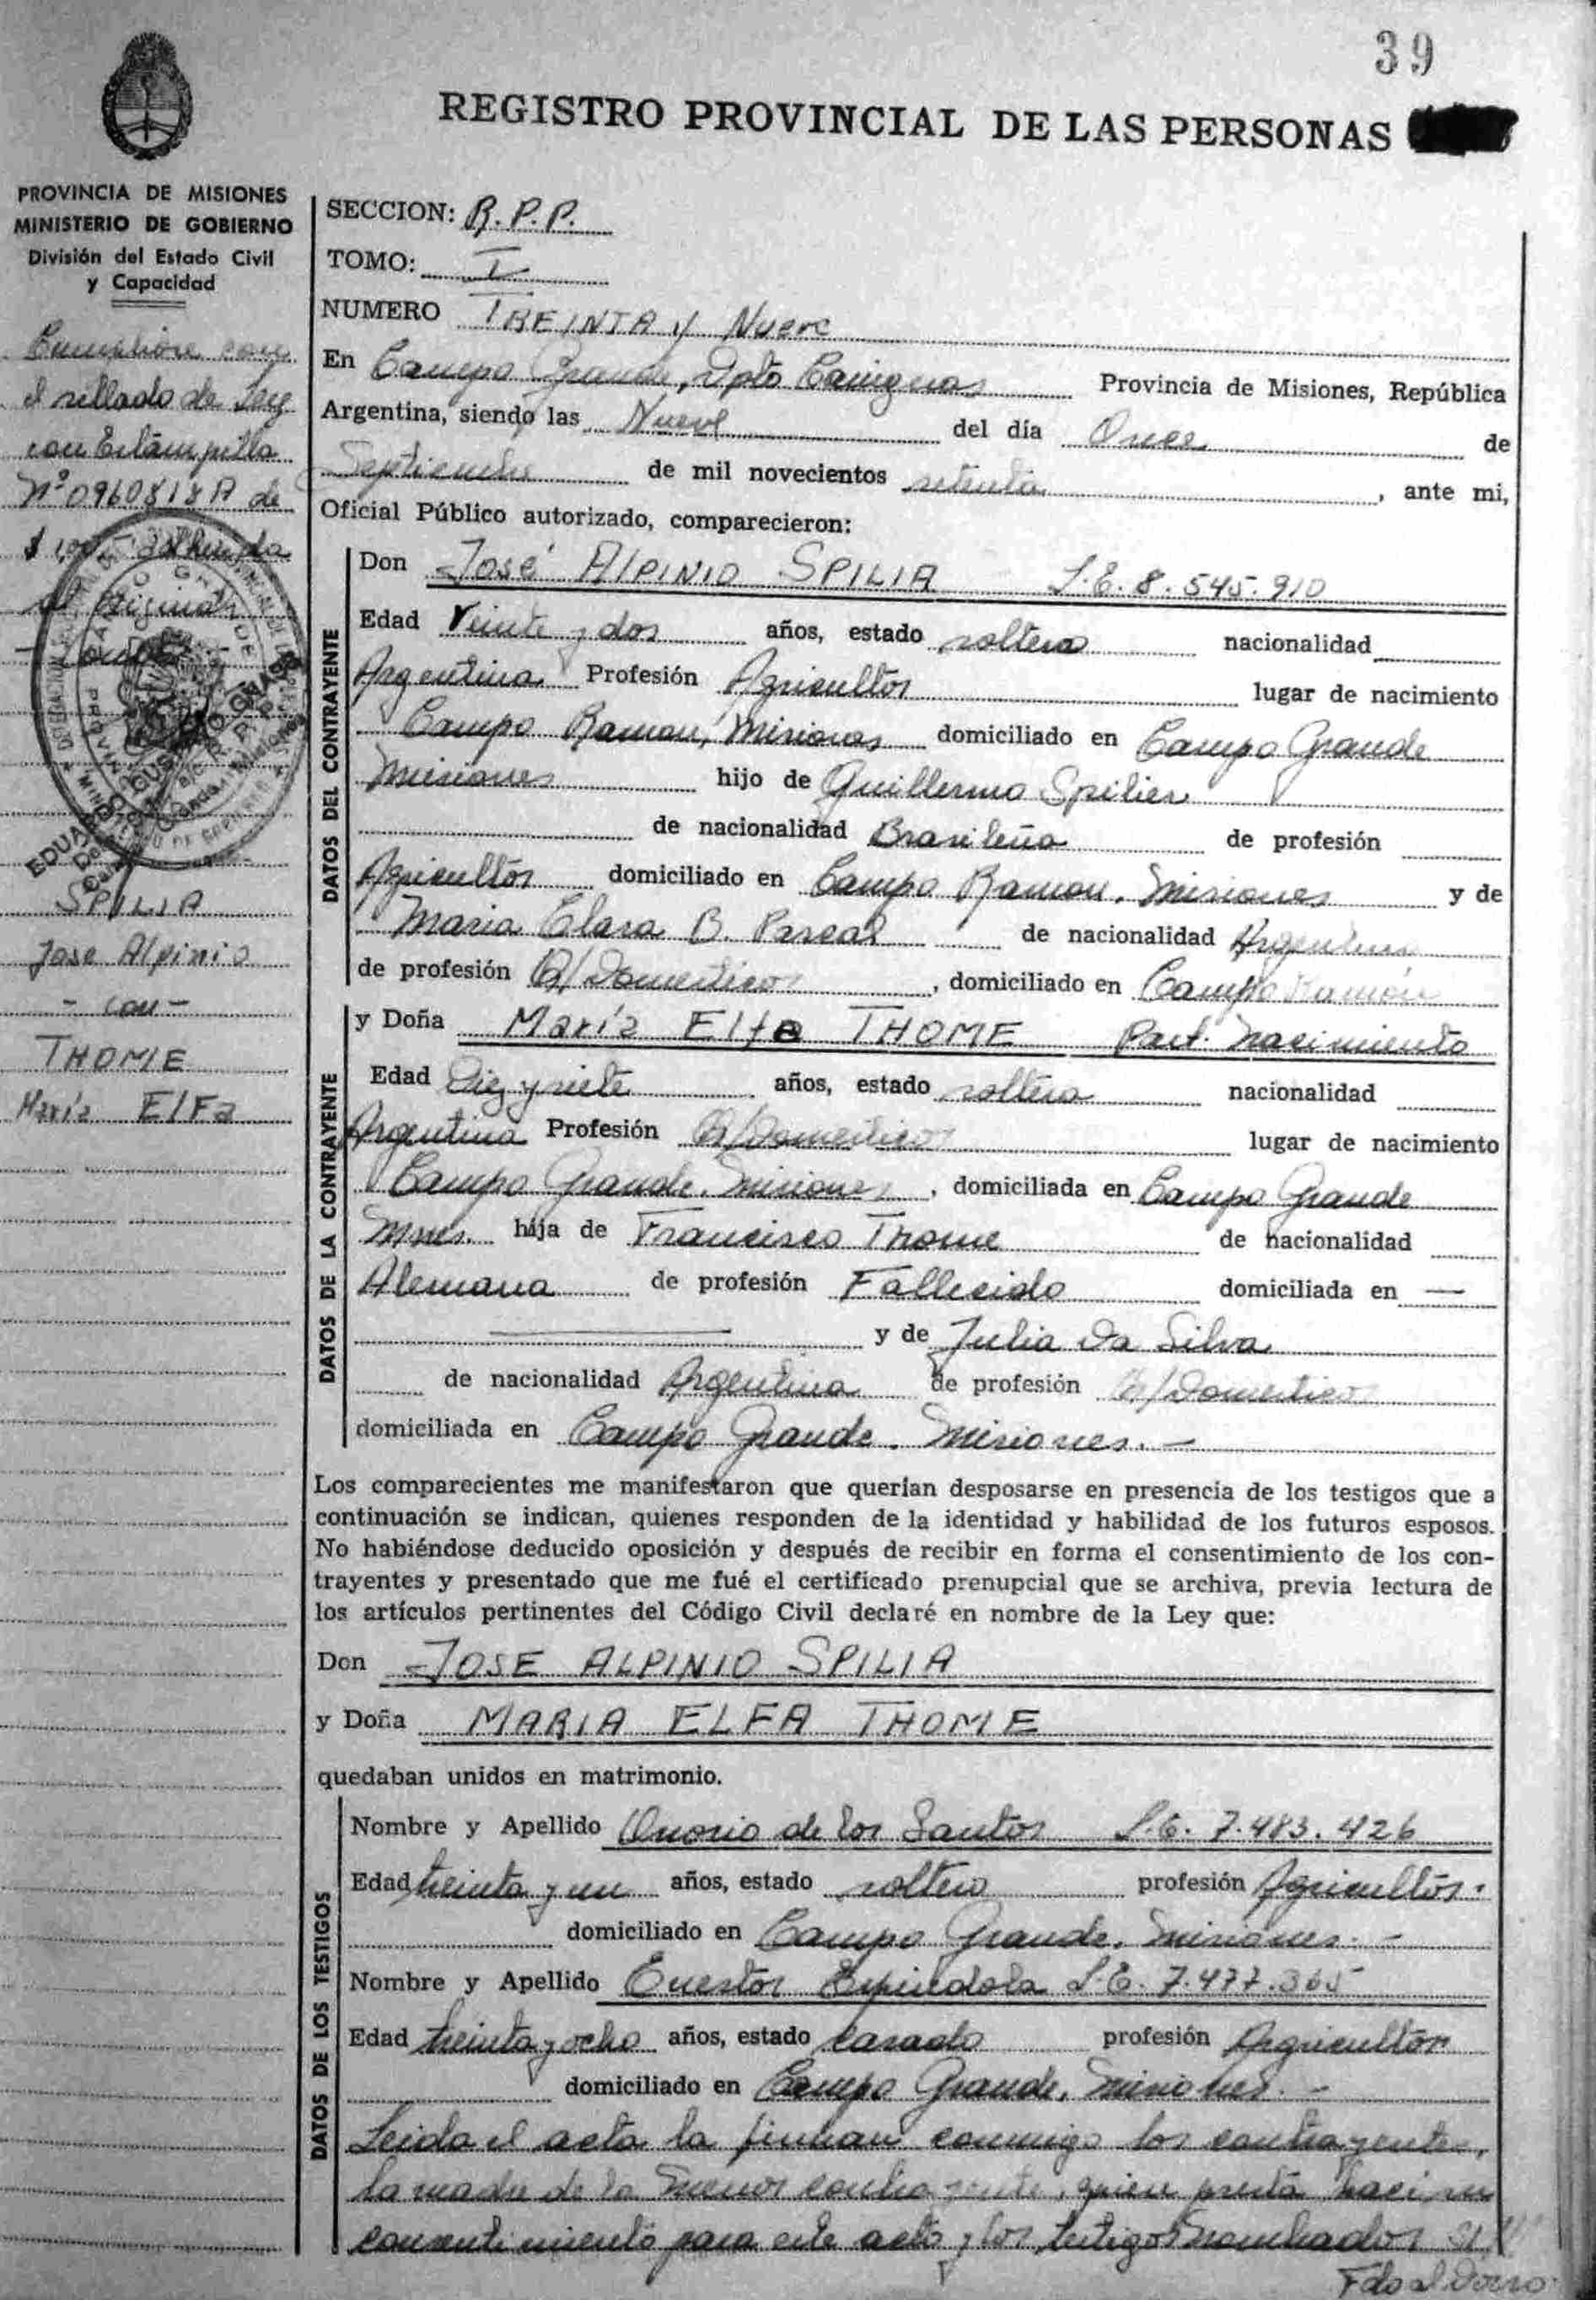 39
REGISTRO PROVINCIAL DE LAS PERSONAS
PROVINCIA DE MISIONES
MINISTERIO DE GOBIERNO
División del Estado Civil
y Capacidad
el sellado de Ley
con Estampilla
Nº 0960818 A de
al original
SPILIA
Jose Alpinio
- con -
THOME
María ElFa
SECCION: R.P.P.
TOMO: I
NUMERO TREINTA y Nueve
En Campo Grande, Dpto Cainguas Provincia de Misiones, República
Argentina, siendo las Nueve del día Once de
Septiembre de mil novecientos setenta, ante mi,
Oficial Público autorizado, comparecieron:
DATOS DEL CONTRAYENTE
Don José Alpinio SPILIA L.E. 8.545.910
Edad Veinte y dos años, estado soltero nacionalidad
Argentina Profesión Agricultor lugar de nacimiento
Campo Ramon, Misiones domiciliado en Campo Grande
Misiones hijo de Guillermo Spilier
de nacionalidad Brasileña de profesión
Agricultor domiciliado en Campo Ramon, Misiones y de
Maria Clara B. Pascal de nacionalidad Argentina
de profesión Q/Domesticos, domiciliado en Campo Ramón
DATOS DE LA CONTRAYENTE
y Doña María Elfa THOME Part. Nacimiento
Edad Diez y siete años, estado soltera nacionalidad
Argentina Profesión Q/Domesticos lugar de nacimiento
Campo Grande, Misiones, domiciliada en Campo Grande
Mnes. hija de Francisco Thome de nacionalidad
Alemana de profesión Fallecido domiciliada en —
y de Julia Da Silva
de nacionalidad Argentina de profesión Q/Domesticos
domiciliada en Campo Grande. Misiones. -
Los comparecientes me manifestaron que querían desposarse en presencia de los testigos que a
continuación se indican, quienes responden de la identidad y habilidad de los futuros esposos.
No habiéndose deducido oposición y después de recibir en forma el consentimiento de los con-
trayentes y presentado que me fué el certificado prenupcial que se archiva, previa lectura de
los artículos pertinentes del Código Civil declaré en nombre de la Ley que:
Don JOSE ALPINIO SPILIA
y Doña MARIA ELFA THOME
quedaban unidos en matrimonio.
DATOS DE LOS TESTIGOS
Nombre y Apellido Onorio de los Santos L.E. 7.483.426
Edad treinta y un años, estado soltero profesión Agricultor.
domiciliado en Campo Grande, Misiones. -
Nombre y Apellido Euestor Espindola L.E. 7.477.365
Edad treinta y ocho años, estado casado profesión Agricultor
domiciliado en Campo Grande, Misiones. -
Leida el acta la firman conmigo los contrayentes,
la madre de la menor contrayente, quien presta haci su
consentimiento para este acto y los testigos nombrados
Fdo al Dorso